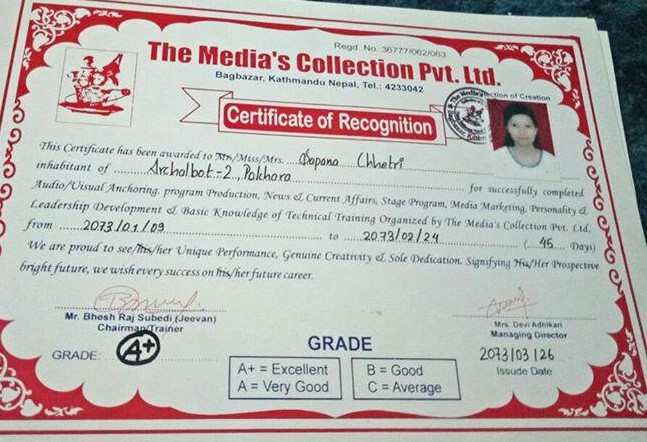 Regd. No. 36777/062/063
The Media's Collection Pvt. Ltd.
Bagbazar, Kathmandu Nepal, Tel.: 4233042
Certificate of Recognition
This Certificate has been awarded to Mr/Miss/Mrs. Bapana Chhetri
inhabitant of Archalbot-2, Pokhara for successfully completed
Audio/Visual Anchoring, program Production, News & Current Affairs, Stage Program, Media Marketing, Personality &
Leadership Development & Basic Knowledge of Technical Training Organized by The Media's Collection Pvt. Ltd,
from 2073/01/09 to 2073/02/24 (45 Days)
We are proud to see/his/her Unique Performance, Genuine Creativity & Sole Dedication. Signifying His/Her Prospective
bright future, we wish every success on his/her future career.
Mr. Bhesh Raj Subedi (Jeevan)
Chairman/Trainer
Mrs. Devi Adhikari
Managing Director
GRADE: A+
2073/03/26
Issude Date
GRADE
A+ = Excellent
A = Very Good
B = Good
C = Average